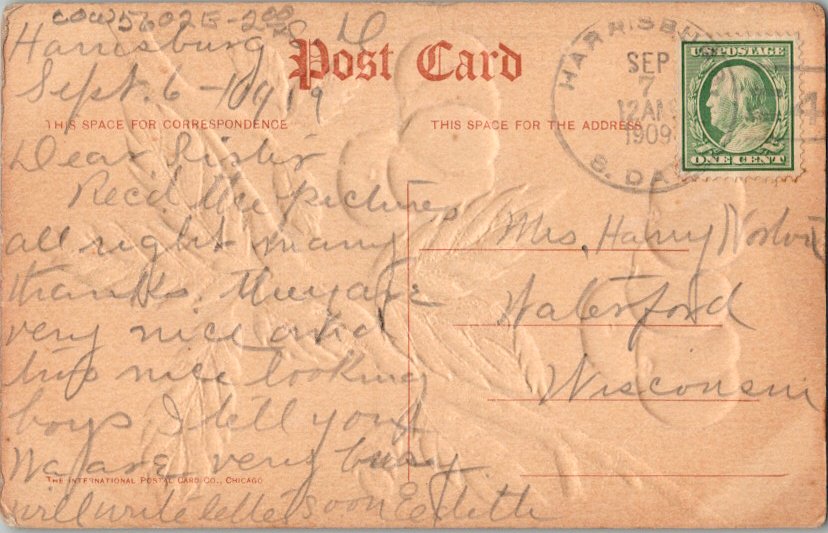 COW5602E-200
Harrisburg S. D
Sept. 6 - 1909
Post Card
HARRISBURG
SEP
7
12AM
1909
S. DAK.
U.S. POSTAGE
ONE CENT
THIS SPACE FOR CORRESPONDENCE
THIS SPACE FOR THE ADDRESS
Dear Sister
Rec'd the pictures
all right many
thanks. they are
very nice and
two nice looking
boys I tell you
We are very busy
will write letter soon Eedith
Mrs. Harry
Waterford
Wisconsin
THE INTERNATIONAL POSTAL CARD CO., CHICAGO